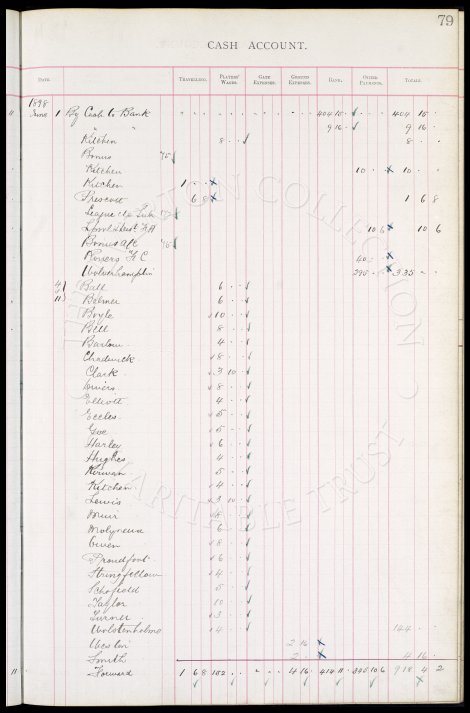 79
CASH ACCOUNT.
DATE. TRAVELLING. PLAYERS' WAGES. GATE EXPENSES. GROUND EXPENSES. BANK. OTHER PAYMENTS. TOTALS.
1898
June 1 By Cash to Bank 404 15 404 15
" " 9 16 9 16
Kitchen 8 8
Bonus 75
Kitchen 10 10
Kitchen 1
Prescott 6 8 1 6 8
League
10 6 10 6
Bonus a/c 75
Rovers F C 40
Wolverhampton 295 335
4 Ball 6
11 Balmer 6
Boyle 10
Bell 8
Barlow 4
Chadwick 8
Clark 3 10
Divers 8
Elliott 4
Eccles 5
Gee 5
Harley 6
Hughes 4
Kirwan 5
Kitchen 4
Lewis 3 10
Muir 8
Molyneux 6
Owen 8
Proudfoot 6
Stringfellow 4
Schofield 5
Taylor 10
Turner 3
Wolstenholme 4 144
2 16
Smith 2 4 16
11 Forward 1 6 8 152 4 16 414 11 345 10 6 918 4 2
COLLECTION
CHARITABLE TRUST